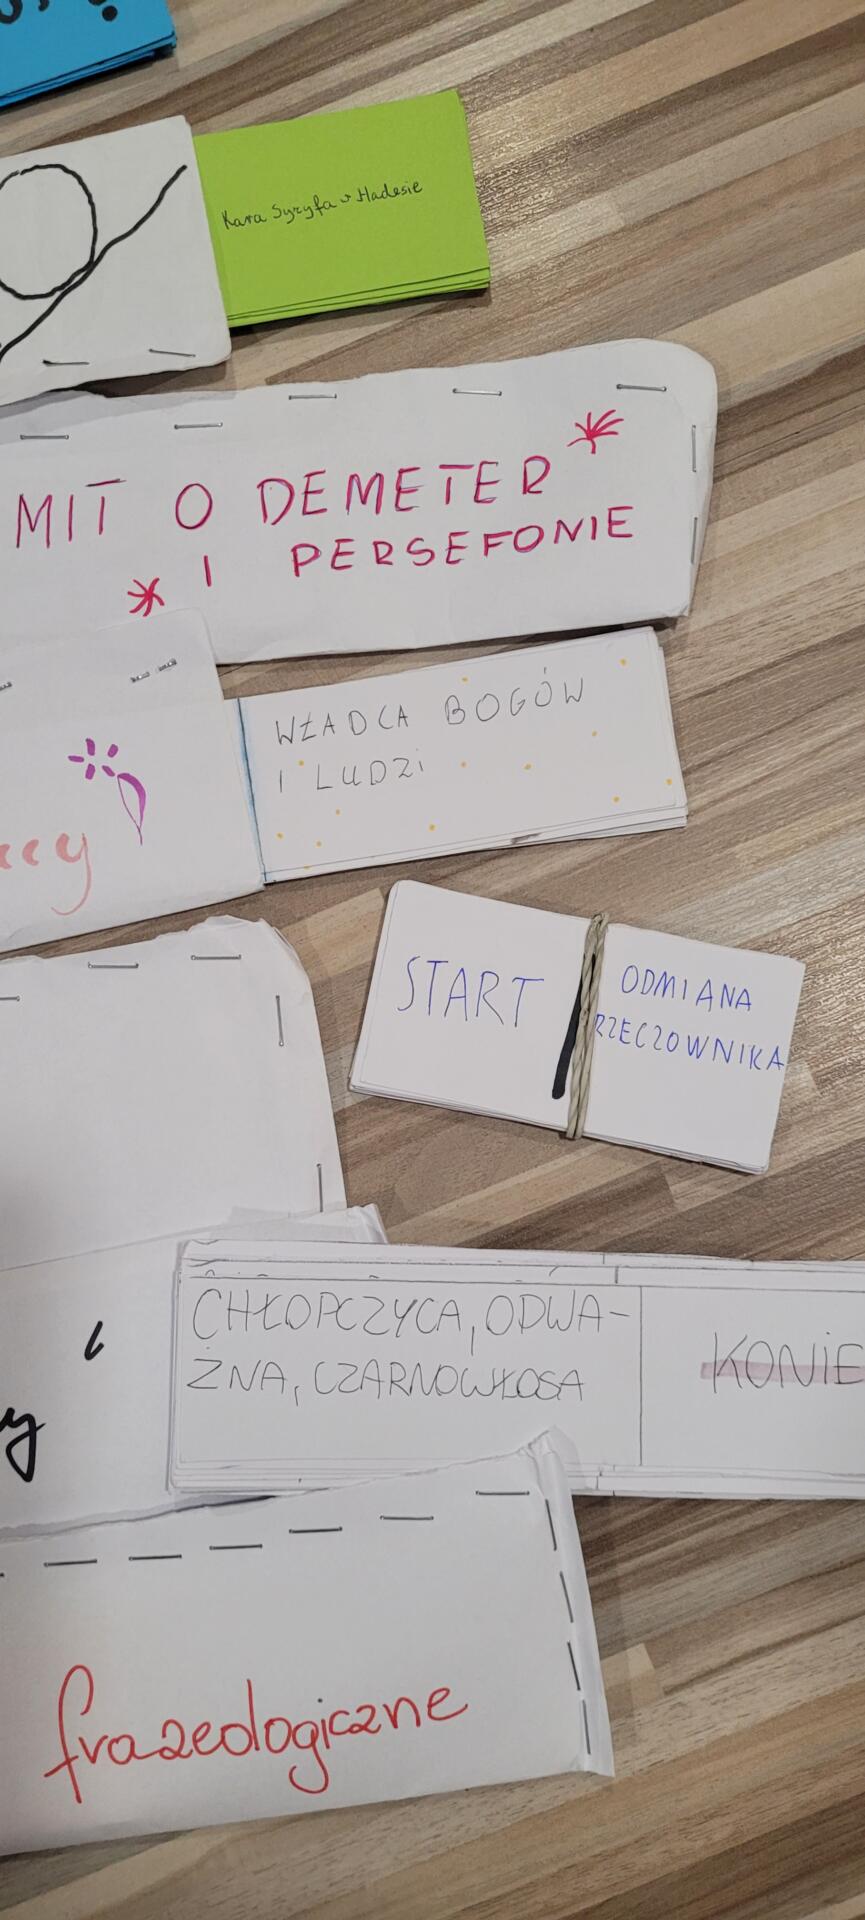 Kara Syzyfa w Hadesie
MIT O DEMETER
I PERSEFONIE
WŁADCA BOGÓW
I LUDZI
START
ODMIANA
RZECZOWNIKA
CHŁOPCZYCA, ODWA-
ŻNA, CZARNOWŁOSA
KONIE
frazeologiczne